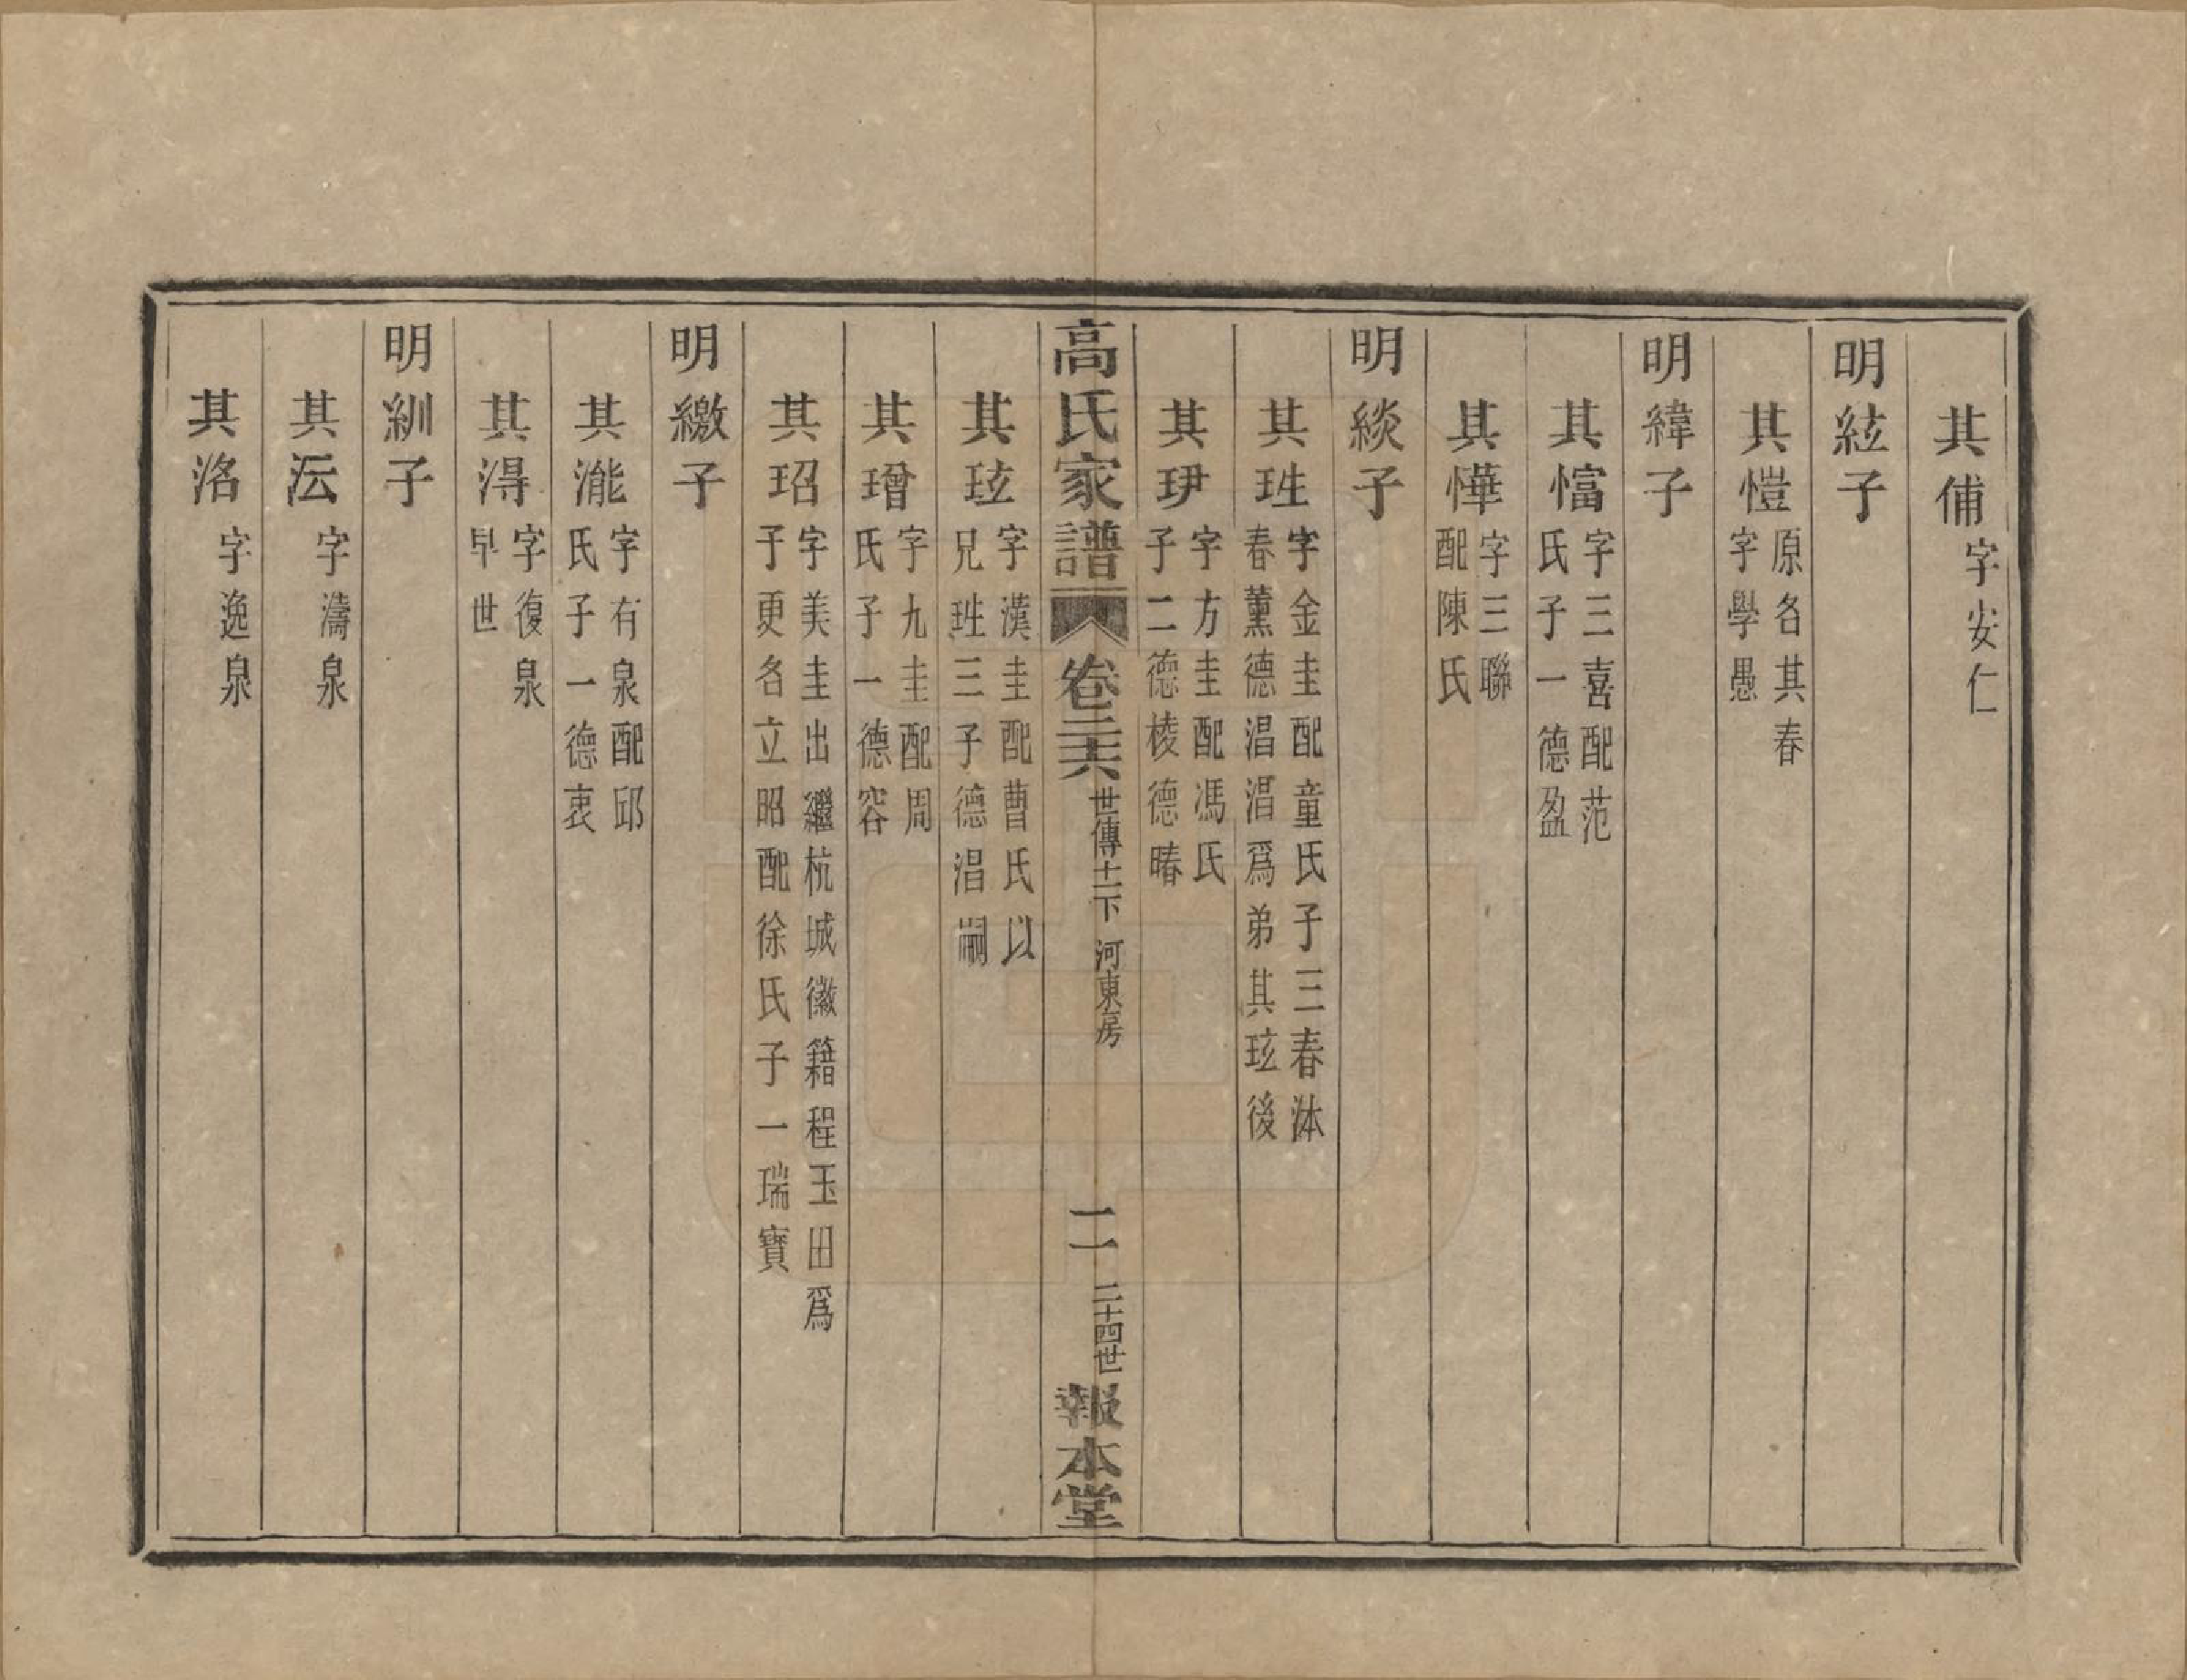 其俌 字安仁
明紘子
其愷 原名其春
字學愚
明緯子
其愊 字三喜配范
氏子一德盈
其㦊 字三聯
配陳氏
明緂子
其珄 字金圭配童氏子三春沐
春薰德淐淐爲弟其玹後
其玾 字方圭配馮氏
子二德棱德暙
高氏家譜 卷三六 世傳十一下 河東房 二 二十四世 報本堂
其玹 字漢圭配曹氏以
兄珄三子德淐嗣
其璔 字九圭配周
氏子一德容
其玿 字美圭出繼杭城徽籍程玉田爲
子更名立昭配徐氏子一瑞寶
明繳子
其瀧 字有泉配邱
氏子一德衷
其淂 字復泉
早世
明紃子
其沄 字濤泉
其洺 字逸泉